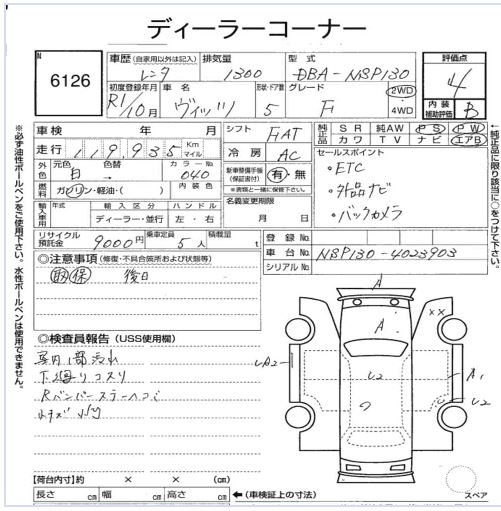 ディーラーコーナー
N
6126
車歴 (自家用以外は記入) レンタ
排気量 1300
型式 DBA-NSP130
評価点 4
内装補助評価 B
初度登録年月 R1/10月
車名 ヴィッツ
形状・ドア数 5
グレード F
2WD
4WD
車検 年 月
走行 119935 Km マイル
シフト FAT
冷房 AC
純正品 SR 純AW PS PW
カワ TV ナビ エアB
外色 元色 白 色替 → カラーNo 040
燃料 ガソリン・軽油・( ) 内装色
新車整備手帳(保証書付) 有・無
※書類と一緒に保管下さい。
輸入車用 年式 輸入区分 ディーラー・並行 ハンドル 左・右
名義変更期限 月 日
セールスポイント
・ETC
・外品ナビ
・バックカメラ
リサイクル預託金 9000円
乗車定員 5人
積載量 t
登録No
車台No NSP130-4023903
シリアルNo
◎注意事項 (修復・不具合箇所および状態等)
取 保 後日
◎検査員報告 (USS使用欄)
下廻りコスリ
小キズ
A
A
U2
A2
A1
U2
XX
【荷台内寸】約 × × (cm)
長さ cm 幅 cm 高さ cm ←(車検証上の寸法)
スペア
※必ず油性ボールペンをご使用下さい。水性ボールペンは使用できません。
←純正品に限り該当に○をつけて下さい。